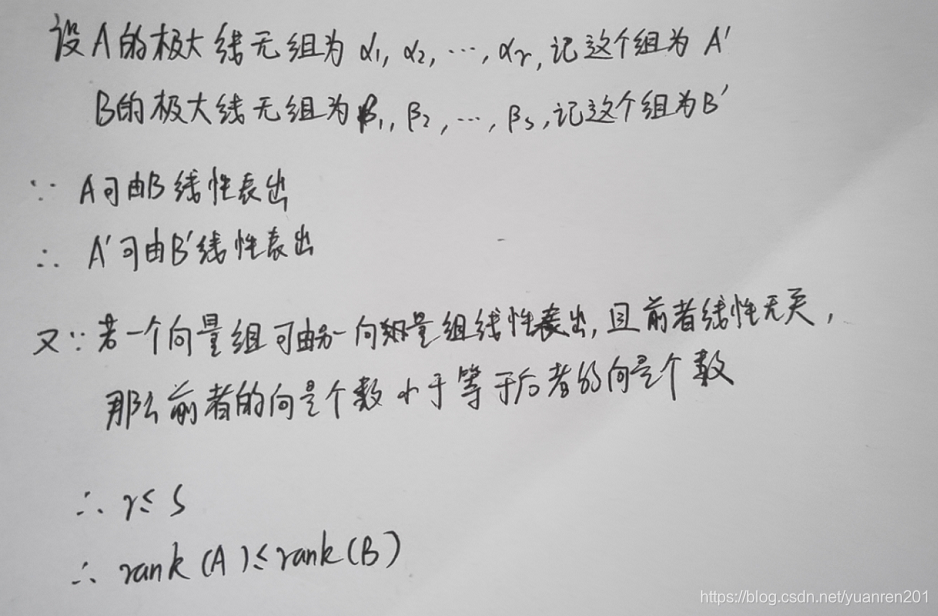 设A的极大线无组为 α₁, α₂, ⋯, αᵣ, 记这个组为 A′
B的极大线无组为β₁, β₂, ⋯, βₛ, 记这个组为B′
∵ A可由B线性表出
∴ A′可由B′线性表出
又∵若一个向量组可由另一向量组线性表出, 且前者线性无关,
那么前者的向量个数小于等于后者的向量个数
∴ r≤s
∴ rank(A)≤rank(B)
https://blog.csdn.net/yuanren201